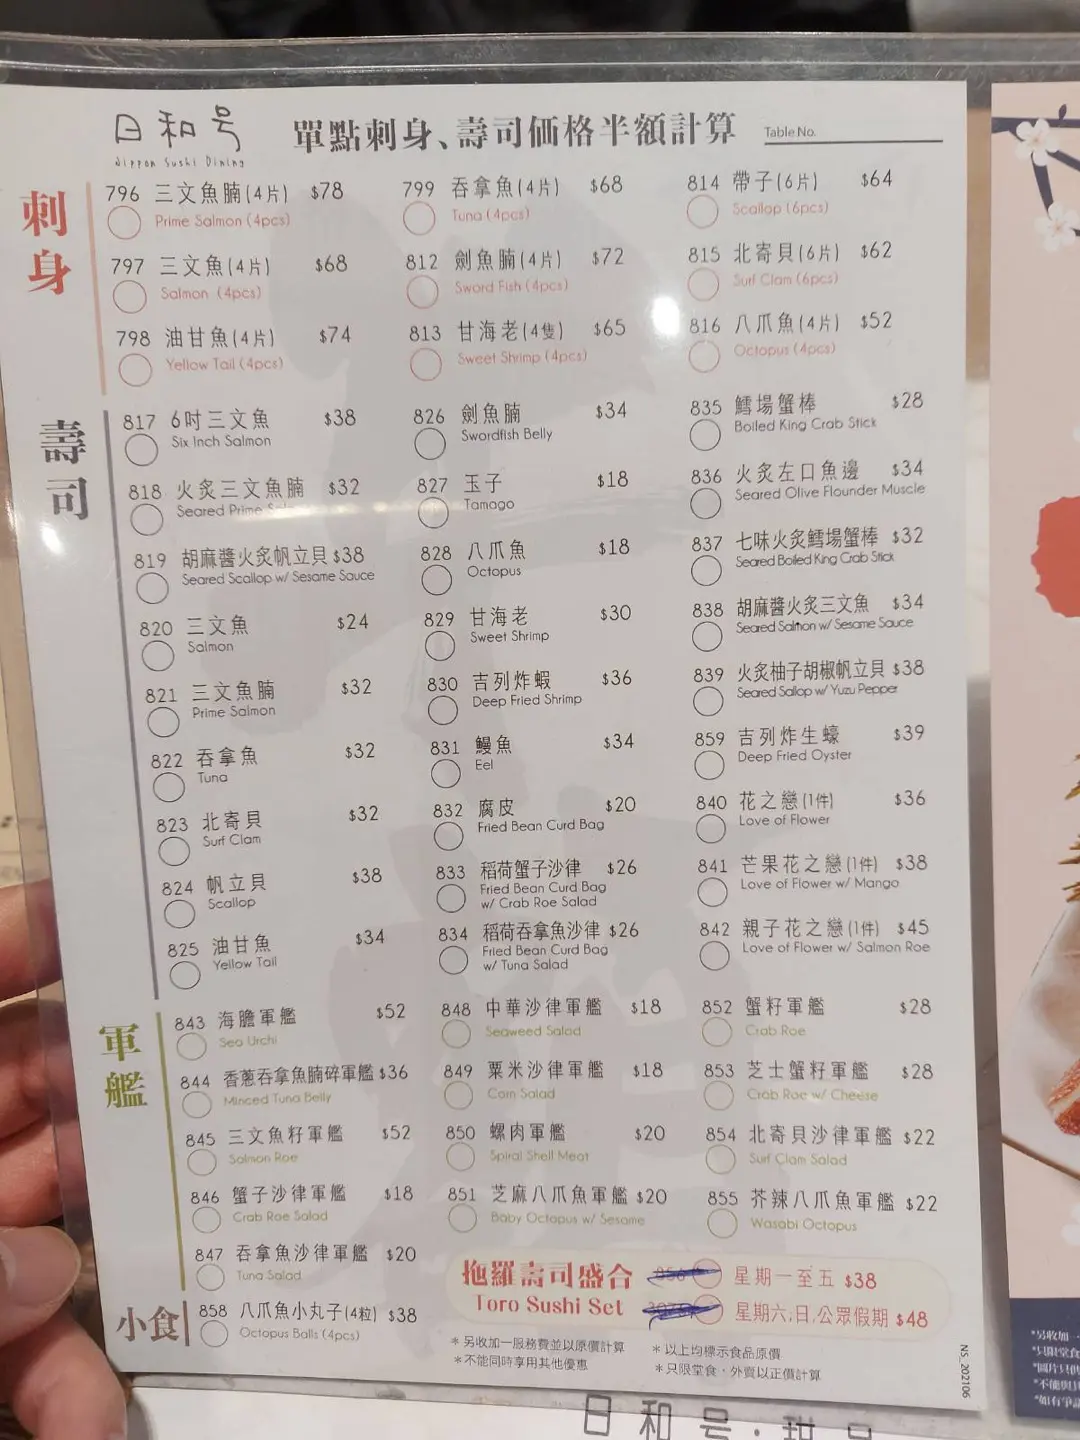 日和号
Nippon Sushi Dining
單點刺身、壽司価格半額計算
Table No.
刺身
796 三文魚腩(4片) $78
Prime Salmon (4pcs)
797 三文魚(4片) $68
Salmon (4pcs)
798 油甘魚(4片) $74
Yellow Tail (4pcs)
799 吞拿魚(4片) $68
Tuna (4pcs)
812 劍魚腩(4片) $72
Sword Fish (4pcs)
813 甘海老(4隻) $65
Sweet Shrimp (4pcs)
814 帶子(6片) $64
Scallop (6pcs)
815 北寄貝(6片) $62
Surf Clam (6pcs)
816 八爪魚(4片) $52
Octopus (4pcs)
壽司
817 6吋三文魚 $38
Six Inch Salmon
818 火炙三文魚腩 $32
Seared Prime
819 胡麻醬火炙帆立貝 $38
Seared Scallop w/ Sesame Sauce
820 三文魚 $24
Salmon
821 三文魚腩 $32
Prime Salmon
822 吞拿魚 $32
Tuna
823 北寄貝 $32
Surf Clam
824 帆立貝 $38
Scallop
825 油甘魚 $34
Yellow Tail
826 劍魚腩 $34
Swordfish Belly
827 玉子 $18
Tamago
828 八爪魚 $18
Octopus
829 甘海老 $30
Sweet Shrimp
830 吉列炸蝦 $36
Deep Fried Shrimp
831 鰻魚 $34
Eel
832 腐皮 $20
Fried Bean Curd Bag
833 稻荷蟹子沙律 $26
Fried Bean Curd Bag
w/ Crab Roe Salad
834 稻荷吞拿魚沙律 $26
Fried Bean Curd Bag
w/ Tuna Salad
835 鱈場蟹棒 $28
Boiled King Crab Stick
836 火炙左口魚邊 $34
Seared Olive Flounder Muscle
837 七味火炙鱈場蟹棒 $32
Seared Boiled King Crab Stick
838 胡麻醬火炙三文魚 $34
Seared Salmon w/ Sesame Sauce
839 火炙柚子胡椒帆立貝 $38
Seared Sallop w/ Yuzu Pepper
859 吉列炸生蠔 $39
Deep Fried Oyster
840 花之戀(1件) $36
Love of Flower
841 芒果花之戀(1件) $38
Love of Flower w/ Mango
842 親子花之戀(1件) $45
Love of Flower w/ Salmon Roe
軍艦
843 海膽軍艦 $52
Sea Urchi
844 香蔥吞拿魚腩碎軍艦 $36
Minced Tuna Belly
845 三文魚籽軍艦 $52
Salmon Roe
846 蟹子沙律軍艦 $18
Crab Roe Salad
847 吞拿魚沙律軍艦 $20
Tuna Salad
848 中華沙律軍艦 $18
Seaweed Salad
849 粟米沙律軍艦 $18
Corn Salad
850 螺肉軍艦 $20
Spiral Shell Meat
851 芝麻八爪魚軍艦 $20
Baby Octopus w/ Sesame
852 蟹籽軍艦 $28
Crab Roe
853 芝士蟹籽軍艦 $28
Crab Roe w/ Cheese
854 北寄貝沙律軍艦 $22
Surf Clam Salad
855 芥辣八爪魚軍艦 $22
Wasabi Octopus
小食
858 八爪魚小丸子(4粒) $38
Octopus Balls (4pcs)
拖羅壽司盛合
Toro Sushi Set
856 星期一至五 $38
星期六,日,公眾假期 $48
＊另收加一服務費並以原價計算
＊不能同時享用其他優惠
＊以上均標示食品原價
＊只限堂食，外賣以正價計算
NS_202106
日和号・
*另收加一
*只限堂食
*圖片只供
*不能與其
*如有爭議